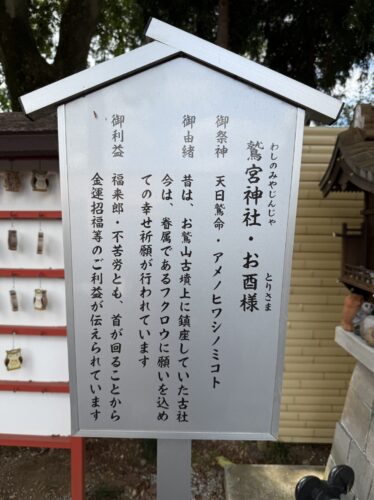 わしのみやじんじゃ とりさま
鷲宮神社・お酉様
御祭神 天日鷲命・アメノヒワシノミコト
御由緒 昔は、お鷲山古墳上に鎮座していた古社
今は、眷属であるフクロウに願いを込め
ての幸せ祈願が行われています
御利益 福来郎・不苦労とも、首が回ることから
金運招福等のご利益が伝えられています